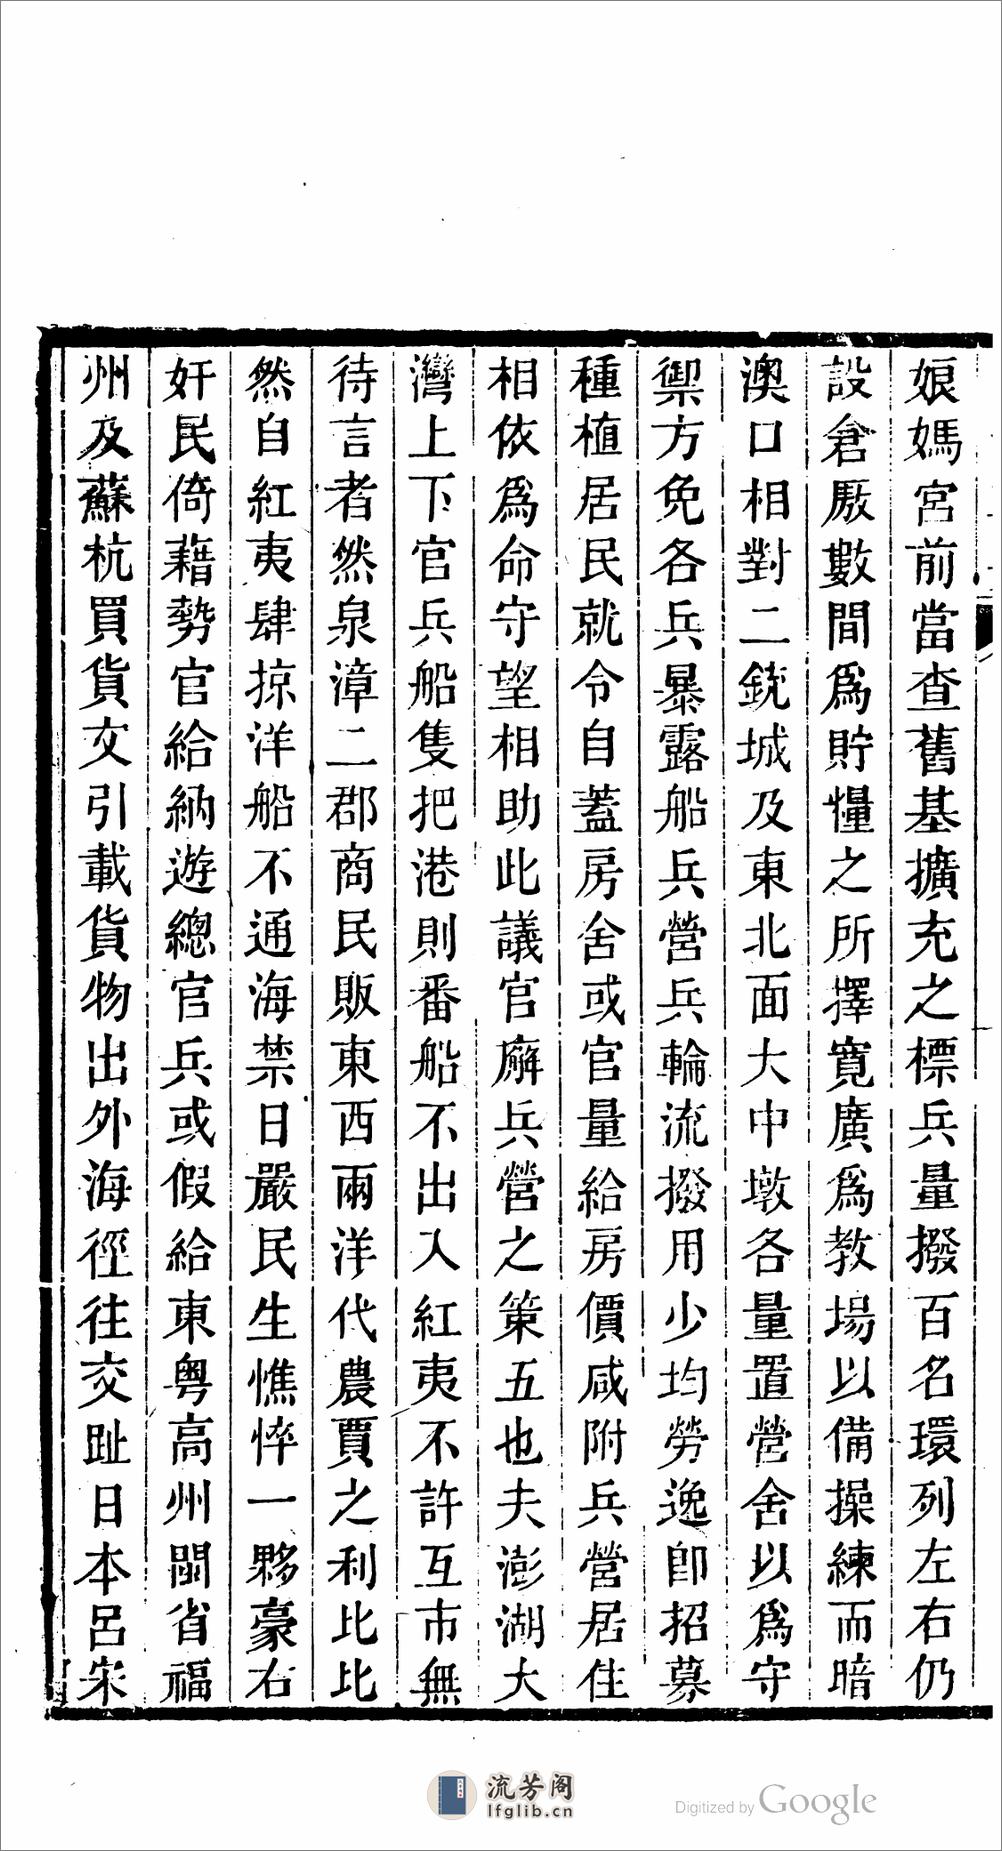 娘媽宮前當查舊基擴充之標兵量撥百名環列左右仍
設倉厫數間爲貯㮔之所擇寬廣爲教場以備操練而暗
澳口相對二銃城及東北面大中墩各量置營舍以爲守
禦方免各兵暴露船兵營兵輪流撥用少均勞逸卽招募
種植居民就令自蓋房舍或官量給房價咸附兵營居住
相依爲命守望相助此議官廨兵營之策五也夫澎湖大
灣上下官兵船隻把港則番船不出入紅夷不許互市無
待言者然泉漳二郡商民販東西兩洋代農賈之利比比
然自紅夷肆掠洋船不通海禁日嚴民生憔悴一夥豪右
奸民倚藉勢官給納遊總官兵或假給東粵高州閩省福
州及蘇杭買貨文引載貨物出外海徑往交趾日本呂宋
流芳阁
lfglib.cn
Digitized by Google